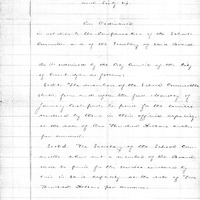 and Sixty Six
An Ordinance
in relation to the Compensation of the School
Committee and of the Secretary of said Board
Be it ordained by the City Council of the City
of Cambridge as follows:
Sect 1. The members of the School Committee
shall from and after the first Monday of
January last past be paid for the services
rendered by them in their official capacity
at the rate of One Hundred dollars each,
per annum.
Sect 2. The Secretary of the School Com-
mittee when not a member of the Board
shall be paid for the services rendered by
him in said capacity at the rate of Two
Hundred dollars per annum.